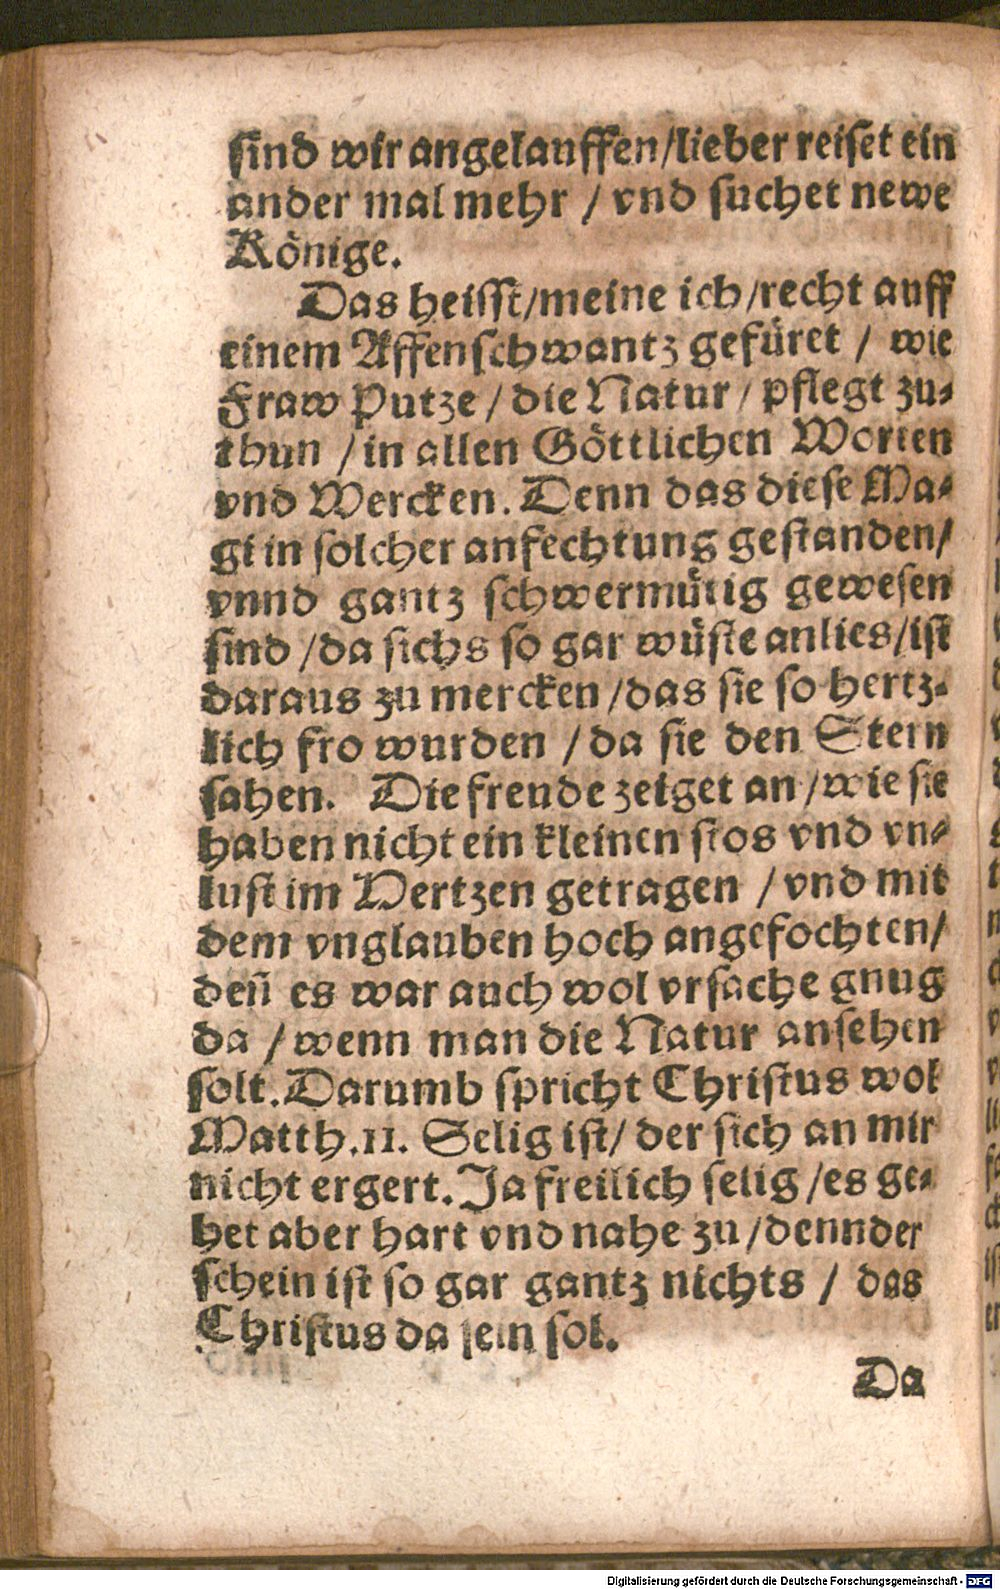 sind wir angelauffen/lieber reiset ein
ander mal mehr / vnd suchet newe
Könige.
Das heisst/meine ich/recht auff
einem Affenschwantz gefüret / wie
Fraw Putze / die Natur / pflegt zu⸗
thun / in allen Göttlichen Worten
vnd Wercken. Denn das diese Ma⸗
gi in solcher anfechtung gestanden/
vnnd gantz schwermütig gewesen
sind / da sichs so gar wüste anlies/ist
daraus zu mercken / das sie so hertz⸗
lich fro wurden / da sie den Stern
sahen. Die freude zeiget an / wie sie
haben nicht ein kleinen stos vnd vn⸗
lust im Hertzen getragen / vnd mit
dem vnglauben hoch angefochten/
den̄ es war auch wol vrsache gnug
da / wenn man die Natur ansehen
solt. Darumb spricht Christus wol
Matth.11. Selig ist/ der sich an mir
nicht ergert. Ja freilich selig /es ge⸗
het aber hart vnd nahe zu / dennder
schein ist so gar gantz nichts / das
Christus da sein sol.
Da
Digitalisierung gefördert durch die Deutsche Forschungsgemeinschaft - DFG